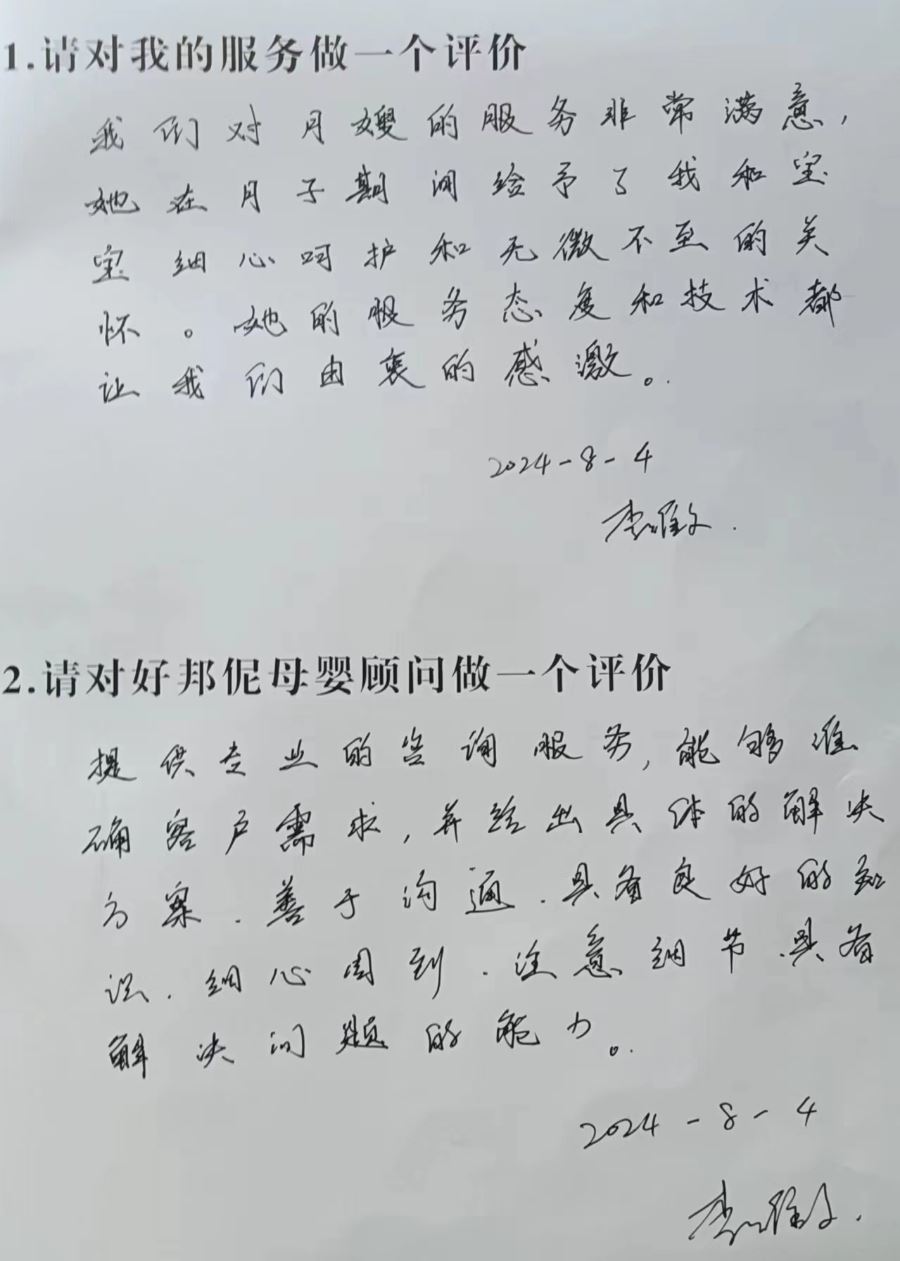 1.请对我的服务做一个评价
我们对月嫂的服务非常满意,
她在月子期间给予了我和宝
宝细心呵护和无微不至的关
怀。她的服务态度和技术都
让我们由衷的感激。
2024-8-4
2.请对好邦伲母婴顾问做一个评价
提供专业的咨询服务,能够准
确客户需求,并给出具体的解决
方案.善于沟通.具备良好的知
识.细心周到.注意细节.具备
解决问题的能力。
2024-8-4